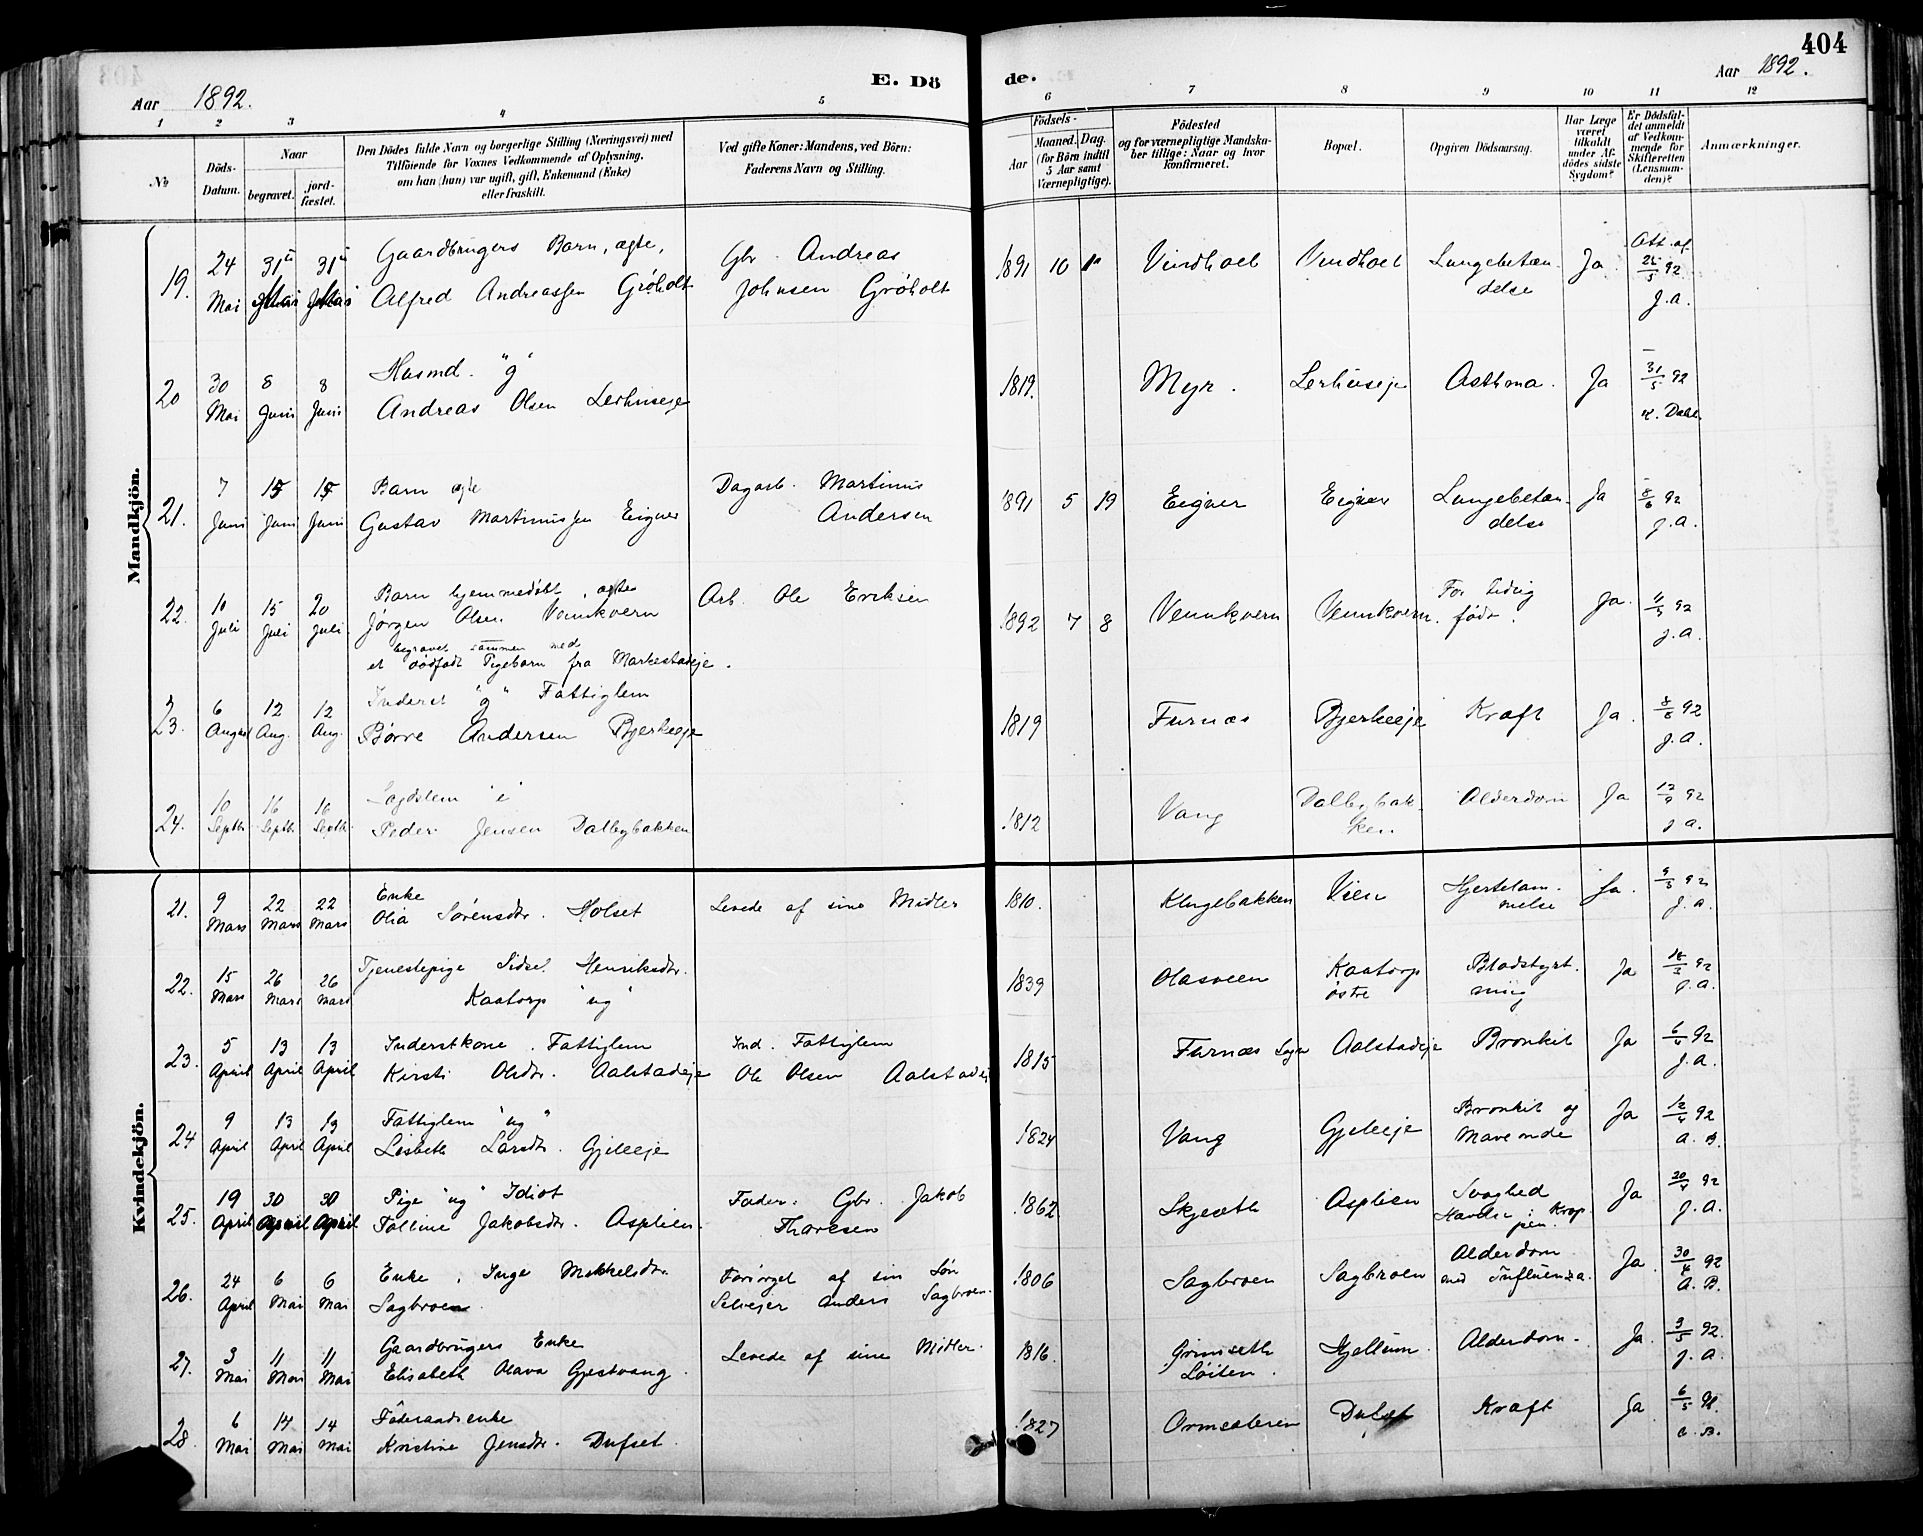 404
Aar 1892.
E. Dö de.
Aar 1892.
1 2 3 4 5 6 7 8 9 10 11 12
No
Döds-Datum.
Naar
begravet.
jord-fæstet.
Den Dödes fulde Navn og borgerlige Stilling (Næringsvei) med
Tilföiende for Voxnes Vedkommende af Oplysning,
om han (hun) var ugift, gift, Enkemand (Enke)
eller fraskilt.
Ved gifte Koner: Mandens, ved Börn:
Faderens Navn og Stilling.
Födsels-
Aar
Maaned. Dag.
(for Börn indtil
5 Aar samt
Værnepligtige).
Födested
og for værnepligtige Mandska-
ber tillige: Naar og hvor
konfirmeret.
Bopæl.
Opgiven Dödsaarsag.
Har Læge
været
tilkaldt
under Af-
dödes sidste
Sygdom?
Er Dödsfal-
det anmeldt
af Vedkom-
mende for
Skifteretten
(Lensman-
den)?
Anmærkninger.
Mandkjön.
24 31te 31te Gaardbrugers Barn, ægte, Gbr. Andreas 1891 10 Vindhoel Vindhoel Lungebetæn- Ja Att. af
19. Mai Mai Mai Alfred Andreassen Gröholt Johnsen Gröholt delse 25/5 92
J.A.
30 8 8 Husmd. "g" 1819. Myr. Lerhuseje Asthma. Ja 31/5 92
20 Mai Juni Juni Andreas Olsen Lerhuseje K. Dahl.
7 15 15 Barn ægte Dagarb. Martinus 1891 5 19 Eigner Eigner Lungebetæn- Ja 8/6 92
21. Juni Juni Juni Gustav Martinussen Eigner Andersen delse J.A.
22. 10 15 20 Barn hjemmedöbt, ægte Arb. Ole Eriksen 1892 7 8 Vennkvern Vennkvern. For tidlig Ja. 92
Juli Juli Juli Jörgen Olsen Vennkvern födt. J.A.
begravet sammen med
et dödfödt Pigebarn fra Markestadeje.
6 12 12 Inderst "g" Fattiglem 1819 Furnæs Bjerkeeje Kræft Ja. 8/8 92
23. August Aug. Aug. Börre Andersen Bjerkeeje J.A.
10 16 16 Lægdslem 1812 Vang Dalbybak- Alderdom Ja 12/9 92
24. Septb. Septb. Septb. Peder Jensen Dalbybakken ken J.A.
Kvindekjön.
21. 9 22 22 Enke Levede af sine Midler 1810. Klingebakken Vien Hjertelam- Ja. 9/3 92
Mars Mars Mars Olia Sörensdtr. Holset melse J.A.
22. 15 26 26 Tjenestepige Sidsel Henriksdtr. 1839 Olasveen Kaatorp Blodstyrt- Ja 92
Mars Mars Mars Kaatorp "ug" östre ning J.A.
23. 5 13 13 Inderstkone. Fattiglem Ind. Fattiglem 1815 Furnæs Sogn Aalstadeje Bronkit Ja 6/4 92
April April April Kirsti Olsdtr. Aalstadeje Ole Olsen Aalstadeje J.A.
24 9 13 13 Fattiglem "ug" 1824 Vang Gjeleeje Bronkit og Ja 12/4 92
April April April Lisbeth Larsdtr. Gjeleeje Maveonde A. B.
25. 19 30 30 Pige "ug" Idiot Fader: Gbr. Jakob 1862 Skjeseth Asplien Svaghed Ja 20/4 92
April April April Torline Jakobsdtr. Asplien. Tharesen i Krop- J.A.
pen.
26. 24 6 6 Enke, Inge Mikkelsdtr. Forsörget af sin Sön 1806 Sagbroen Sagbroen Alderdom Ja. 30/4 92
April Mai Mai Sagbroen. Selvejer Anders Sagbroen. med Influenza. A. B.
27. 3 11 11 Gaardbrugers Enke Levede af sine Midler. 1816. Grimseth Hjellum. Alderdom. Ja. 3/5 92.
Mai Mai Mai Elisabeth Olava Gjestvang. Löiten. J.A.
28. 6 14 14 Föderaadsenke 1827 Ormsæteren Dufset Kræft Ja 6/5 92
Mai Mai Mai Kristine Jensdtr. Dufset.